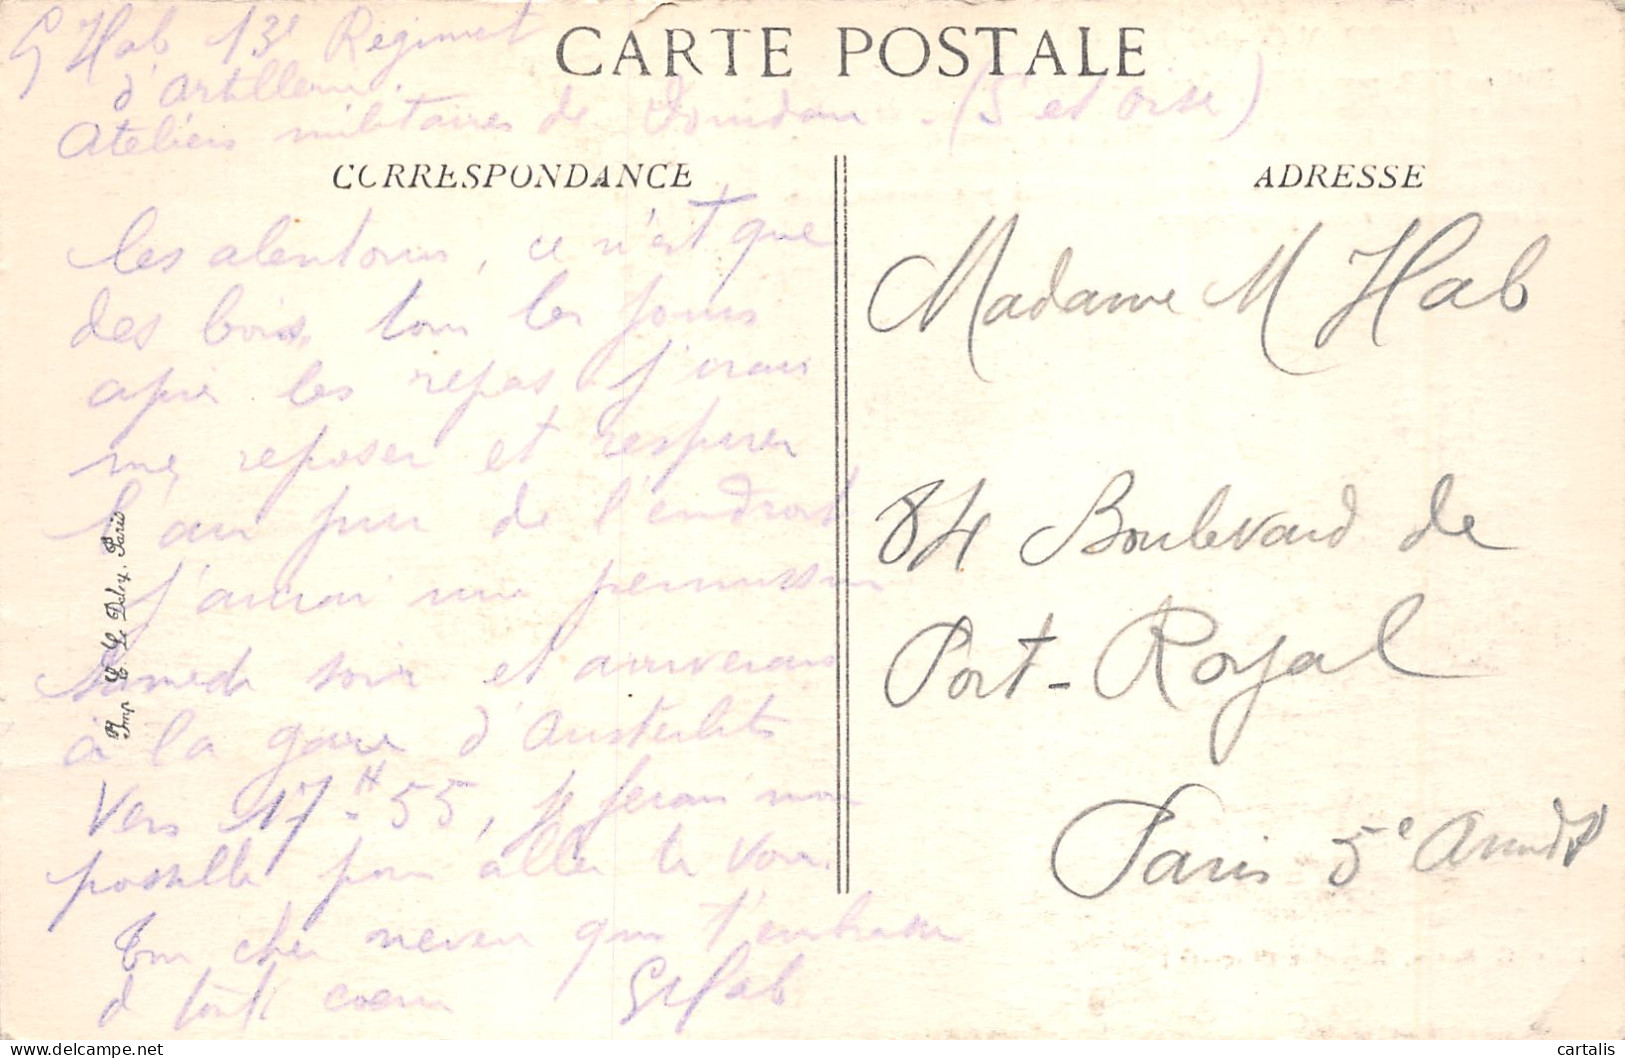 G Hab 13e Régiment
d'Artillerie
CARTE POSTALE
Ateliers militaires de Dourdan - (S et Oise)
CORRESPONDANCE
les alentours, ce n'est que
des bois, tous les jours
après les repas j'irais
me reposer et respirer
l'air pur de l'endroit
j'aurai une permission
samedi soir et arriverais
à la gare d'Austerlits
Vers 17H-55, je ferai mon
possible pour aller te voir.
Ton cher neveu qui t'embrasse
d tout coeur
G Hab
Imp. E. Le Deley, Paris
ADRESSE
Madame M Hab
84 Boulevard de
Port-Royal
Paris 5e Arrondt
cartalis